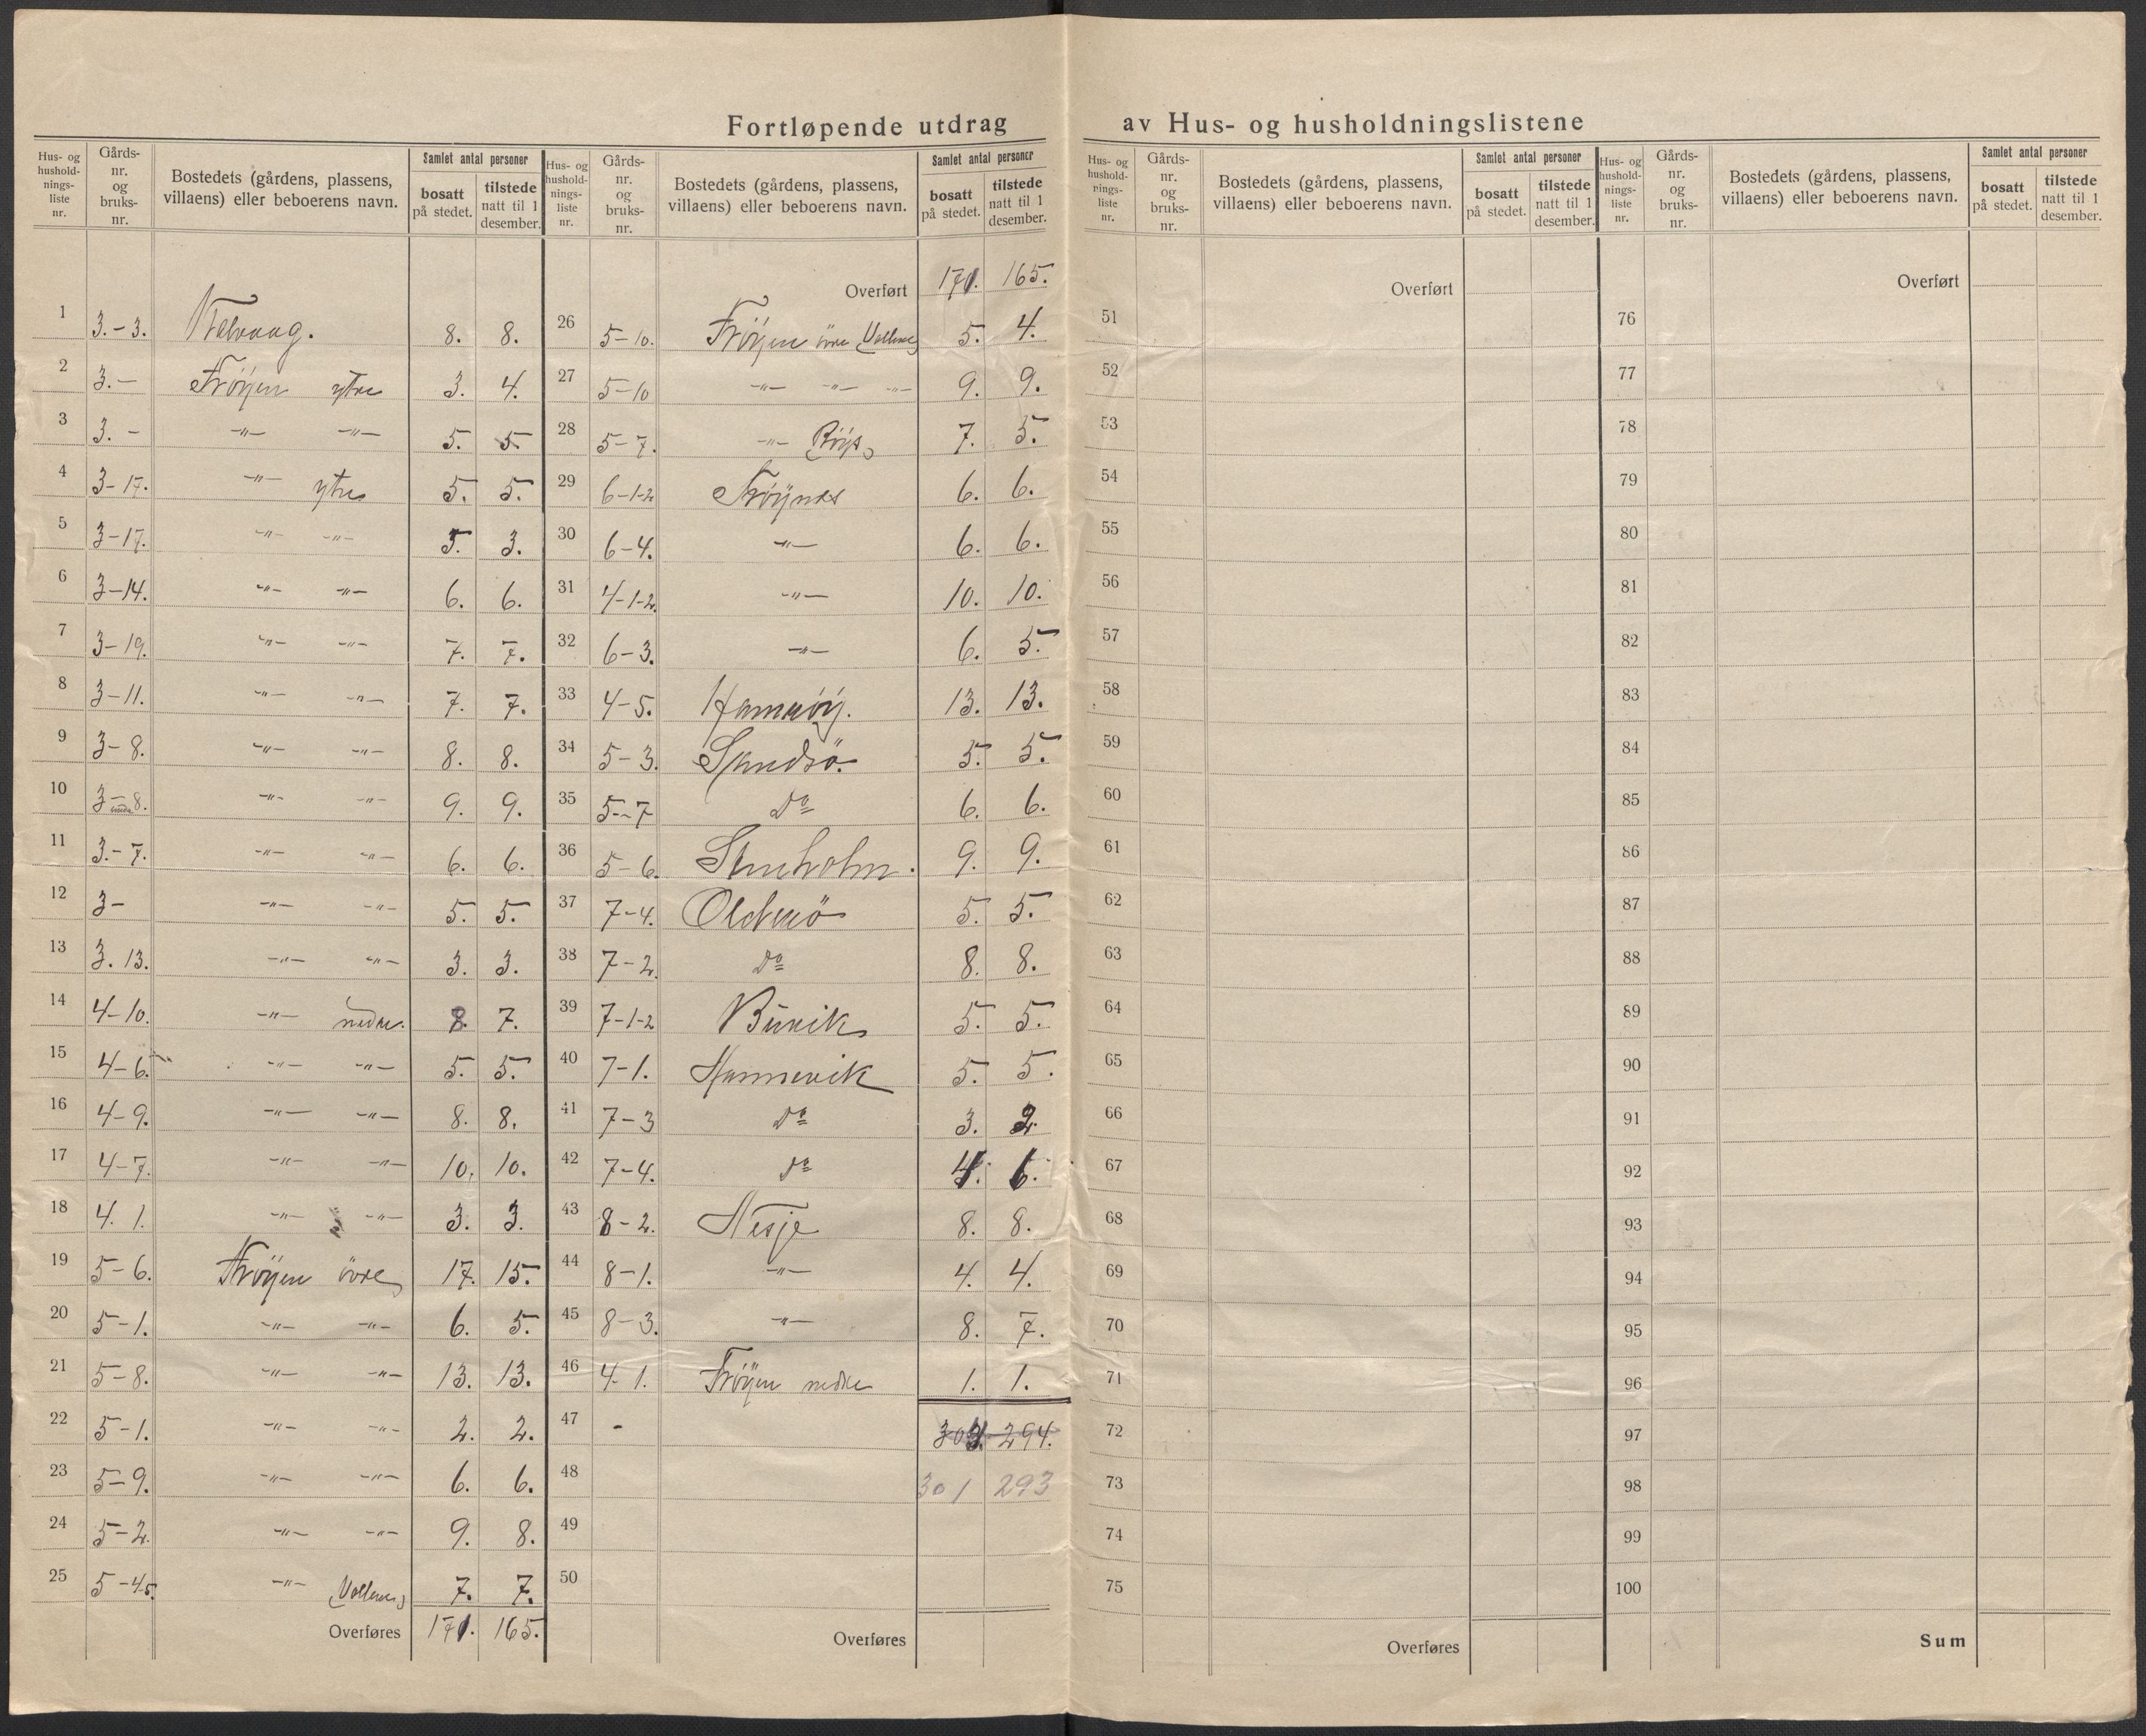 Fortløpende utdrag av Hus- og husholdningslistene
Hus- og hushold-nings-liste nr. Gårds-nr. og bruks-nr. Bostedets (gårdens, plassens, villaens) eller beboerens navn. Samlet antal personer bosatt på stedet. tilstede natt til 1 desember.
1 3.-3. 8. 8.
2 3.- Frøyen ytre 3. 4.
3 3.- -"- -"- 5. 5.
4 3-17. -"- ytre 5. 5.
5 3-17. -"- -"- 5. 3.
6 3-14. -"- -"- 6. 6.
7 3-19. -"- -"- 7. 7.
8 3-11. -"- -"- 7. 7.
9 3-8. -"- -"- 8. 8.
10 3-8. -"- -"- 9. 9.
11 3.-7. -"- -"- 6. 6.
12 3- -"- -"- 5. 5.
13 3.13. -"- -"- 3. 3.
14 4-10. -"- nedre. 8. 7.
15 4-6. -"- -"- 5. 5.
16 4-9. -"- -"- 8. 8.
17 4-7. -"- -"- 10. 10.
18 4.1. -"- -"- 3. 3.
19 5-6. Frøyen övre 17. 15.
20 5-1. -"- -"- 6. 5.
21 5-8. -"- -"- 13. 13.
22 5-1. -"- -"- 2. 2.
23 5-9. -"- -"- 6. 6.
24 5-2. -"- -"- 9. 8.
25 5-45. -"- 7. 7.
Overføres 171. 165.
Hus- og hushold-nings-liste nr. Gårds-nr. og bruks-nr. Bostedets (gårdens, plassens, villaens) eller beboerens navn. Samlet antal personer bosatt på stedet. tilstede natt til 1 desember.
Overført 171. 165.
26 5-10. Frøyen övre 5. 4.
27 5-10 -"- -"- -"- 9. 9.
28 5-7. -"- 7. 5.
29 6-1-2 Frøynes 6. 6.
30 6-4. -"- 6. 6.
31 4-1-2. -"- 10. 10.
32 6-3. -"- 6. 5.
33 4-5. Hamnøy. 13. 13.
34 5-3. Sandsö. 5. 5.
35 5-7 Do 6. 6.
36 5-6. 9. 9.
37 7-4. 5. 5.
38 7-2. Do 8. 8.
39 7-1-2 5. 5.
40 7-1. Hamnevik 5. 5.
41 7-3 Do 3. 2.
42 7-4. Do 4. 6.
43 8-2. Nesje 8. 8.
44 8-1. -"- 4. 4.
45 8-3. -"- 8. 7.
46 4-1. Frøyen nedre 1. 1.
47 - 294.
48 301 293
49
50
Overføres
Hus- og hushold-nings-liste nr. Gårds-nr. og bruks-nr. Bostedets (gårdens, plassens, villaens) eller beboerens navn. Samlet antal personer bosatt på stedet. tilstede natt til 1 desember.
Overført
51
52
53
54
55
56
57
58
59
60
61
62
63
64
65
66
67
68
69
70
71
72
73
74
75
Overføres
Hus- og hushold-nings-liste nr. Gårds-nr. og bruks-nr. Bostedets (gårdens, plassens, villaens) eller beboerens navn. Samlet antal personer bosatt på stedet. tilstede natt til 1 desember.
Overført
76
77
78
79
80
81
82
83
84
85
86
87
88
89
90
91
92
93
94
95
96
97
98
99
100
Sum